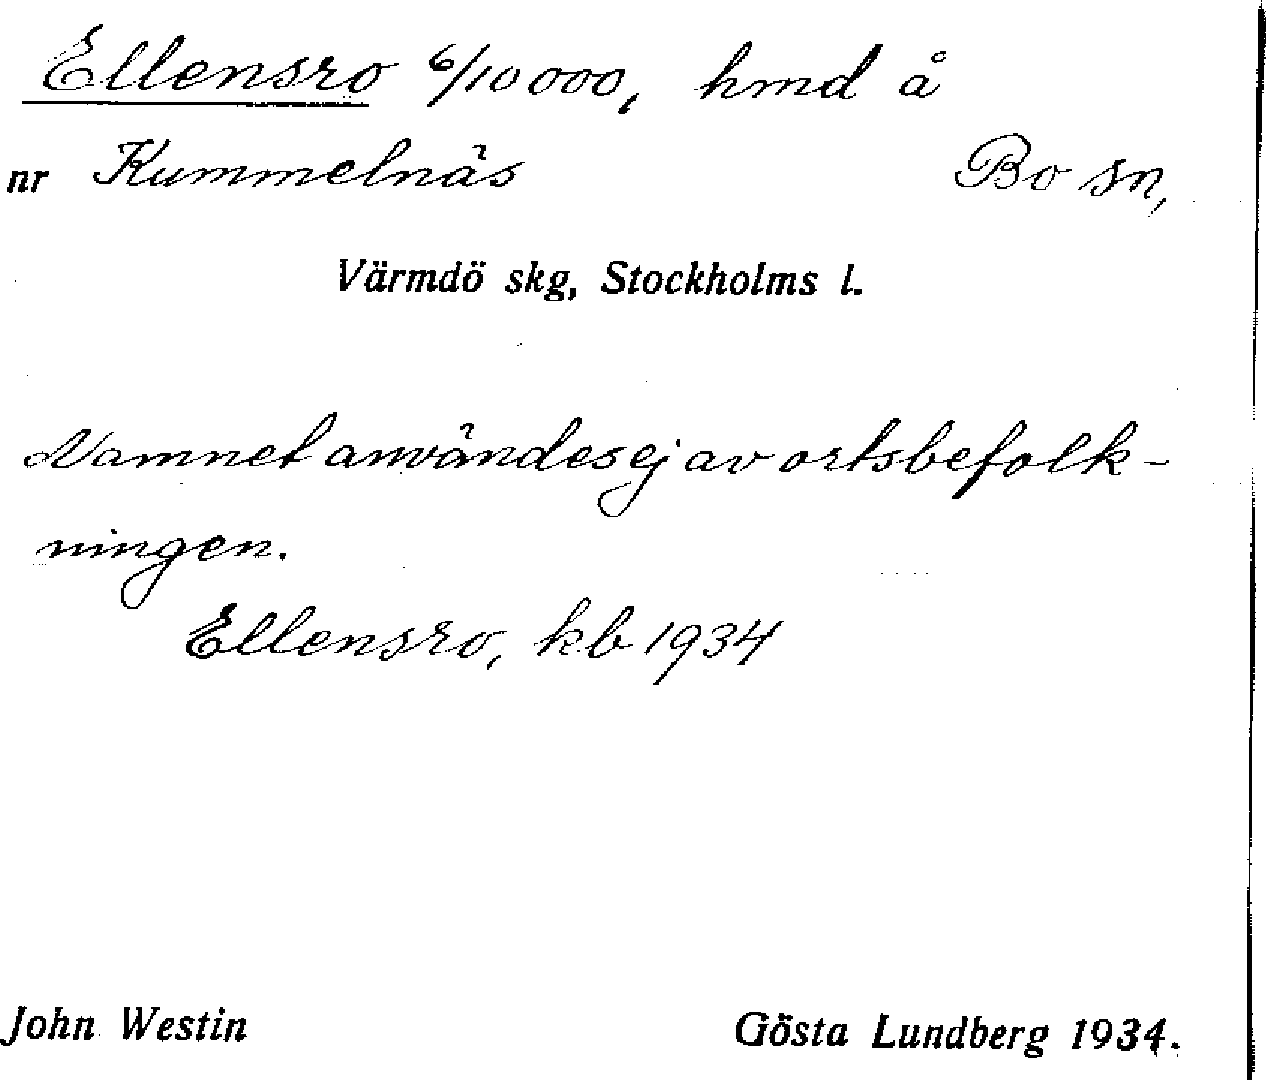 Ellensro 6/10000, hmd å
nr Kummelnäs Bo sn,
Värmdö skg, Stockholms l.
Namnet användes ej av ortsbefolk-
ningen.
Ellensro, kb 1934
John Westin Gösta Lundberg 1934.